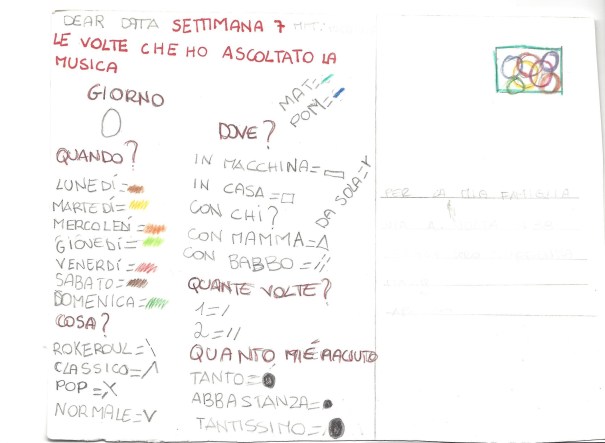 DEAR DATA SETTIMANA 7
LE VOLTE CHE HO ASCOLTATO LA
MUSICA
GIORNO
QUANDO?
LUNEDÍ=
MARTEDÍ=
MERCOLEDÍ=
GIOVEDÍ=
VENERDÍ=
SABATO=
DOMENICA=
COSA?
ROKEROUL=\
CLASSICO=/\
POP=X
NORMALE=V
MAT=
POM=
DOVE?
IN MACCHINA=
IN CASA=
CON CHI?
DA SOLA=Y
CON MAMMA=Δ
CON BABBO=//
QUANTE VOLTE?
1=/
2=//
QUANTO MI É PIACIUTO
TANTO=
ABBASTANZA=
TANTISSIMO=
PER LA MIA FAMIGLIA